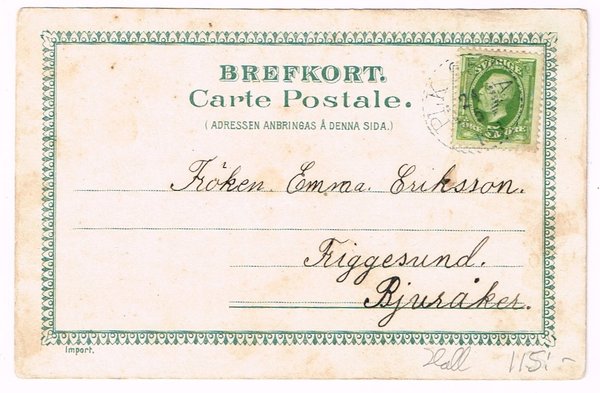 BREFKORT.
Carte Postale.
(ADRESSEN ANBRINGAS Å DENNA SIDA.)
SVERIGE
FEM ÖRE
PLK
Fröken. Emma. Eriksson.
Friggesund.
Bjuråker.
Import.
115:-